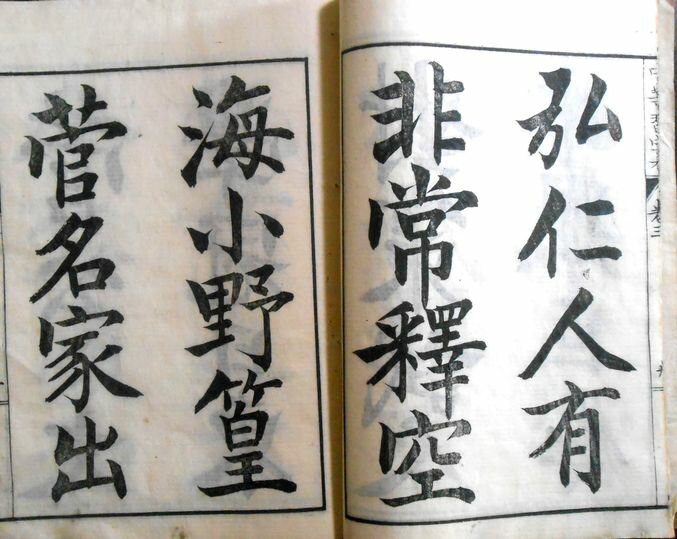 弘仁人有
非常釋空
海小野篁
菅名家出